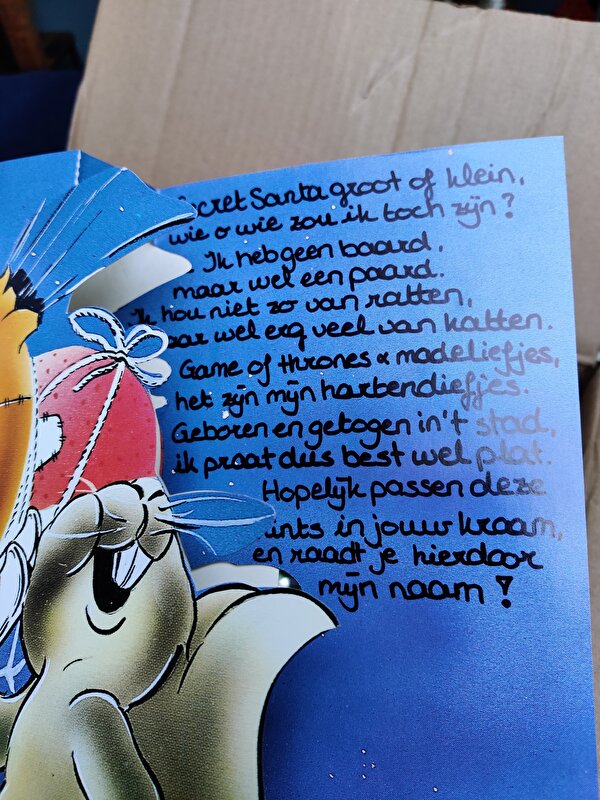 Secret Santa groot of klein,
wie o wie zou ik toch zijn?
Ik heb geen baard,
maar wel een paard.
Ik hou niet zo van ratten,
maar wel erg veel van katten.
Game of thrones & madeliefjes,
het zijn mijn hartendiefjes.
Geboren en getogen in 't stad,
ik praat dus best wel plat.
Hopelijk passen deze
hints in jouw kraam,
en raadt je hierdoor
mijn naam?